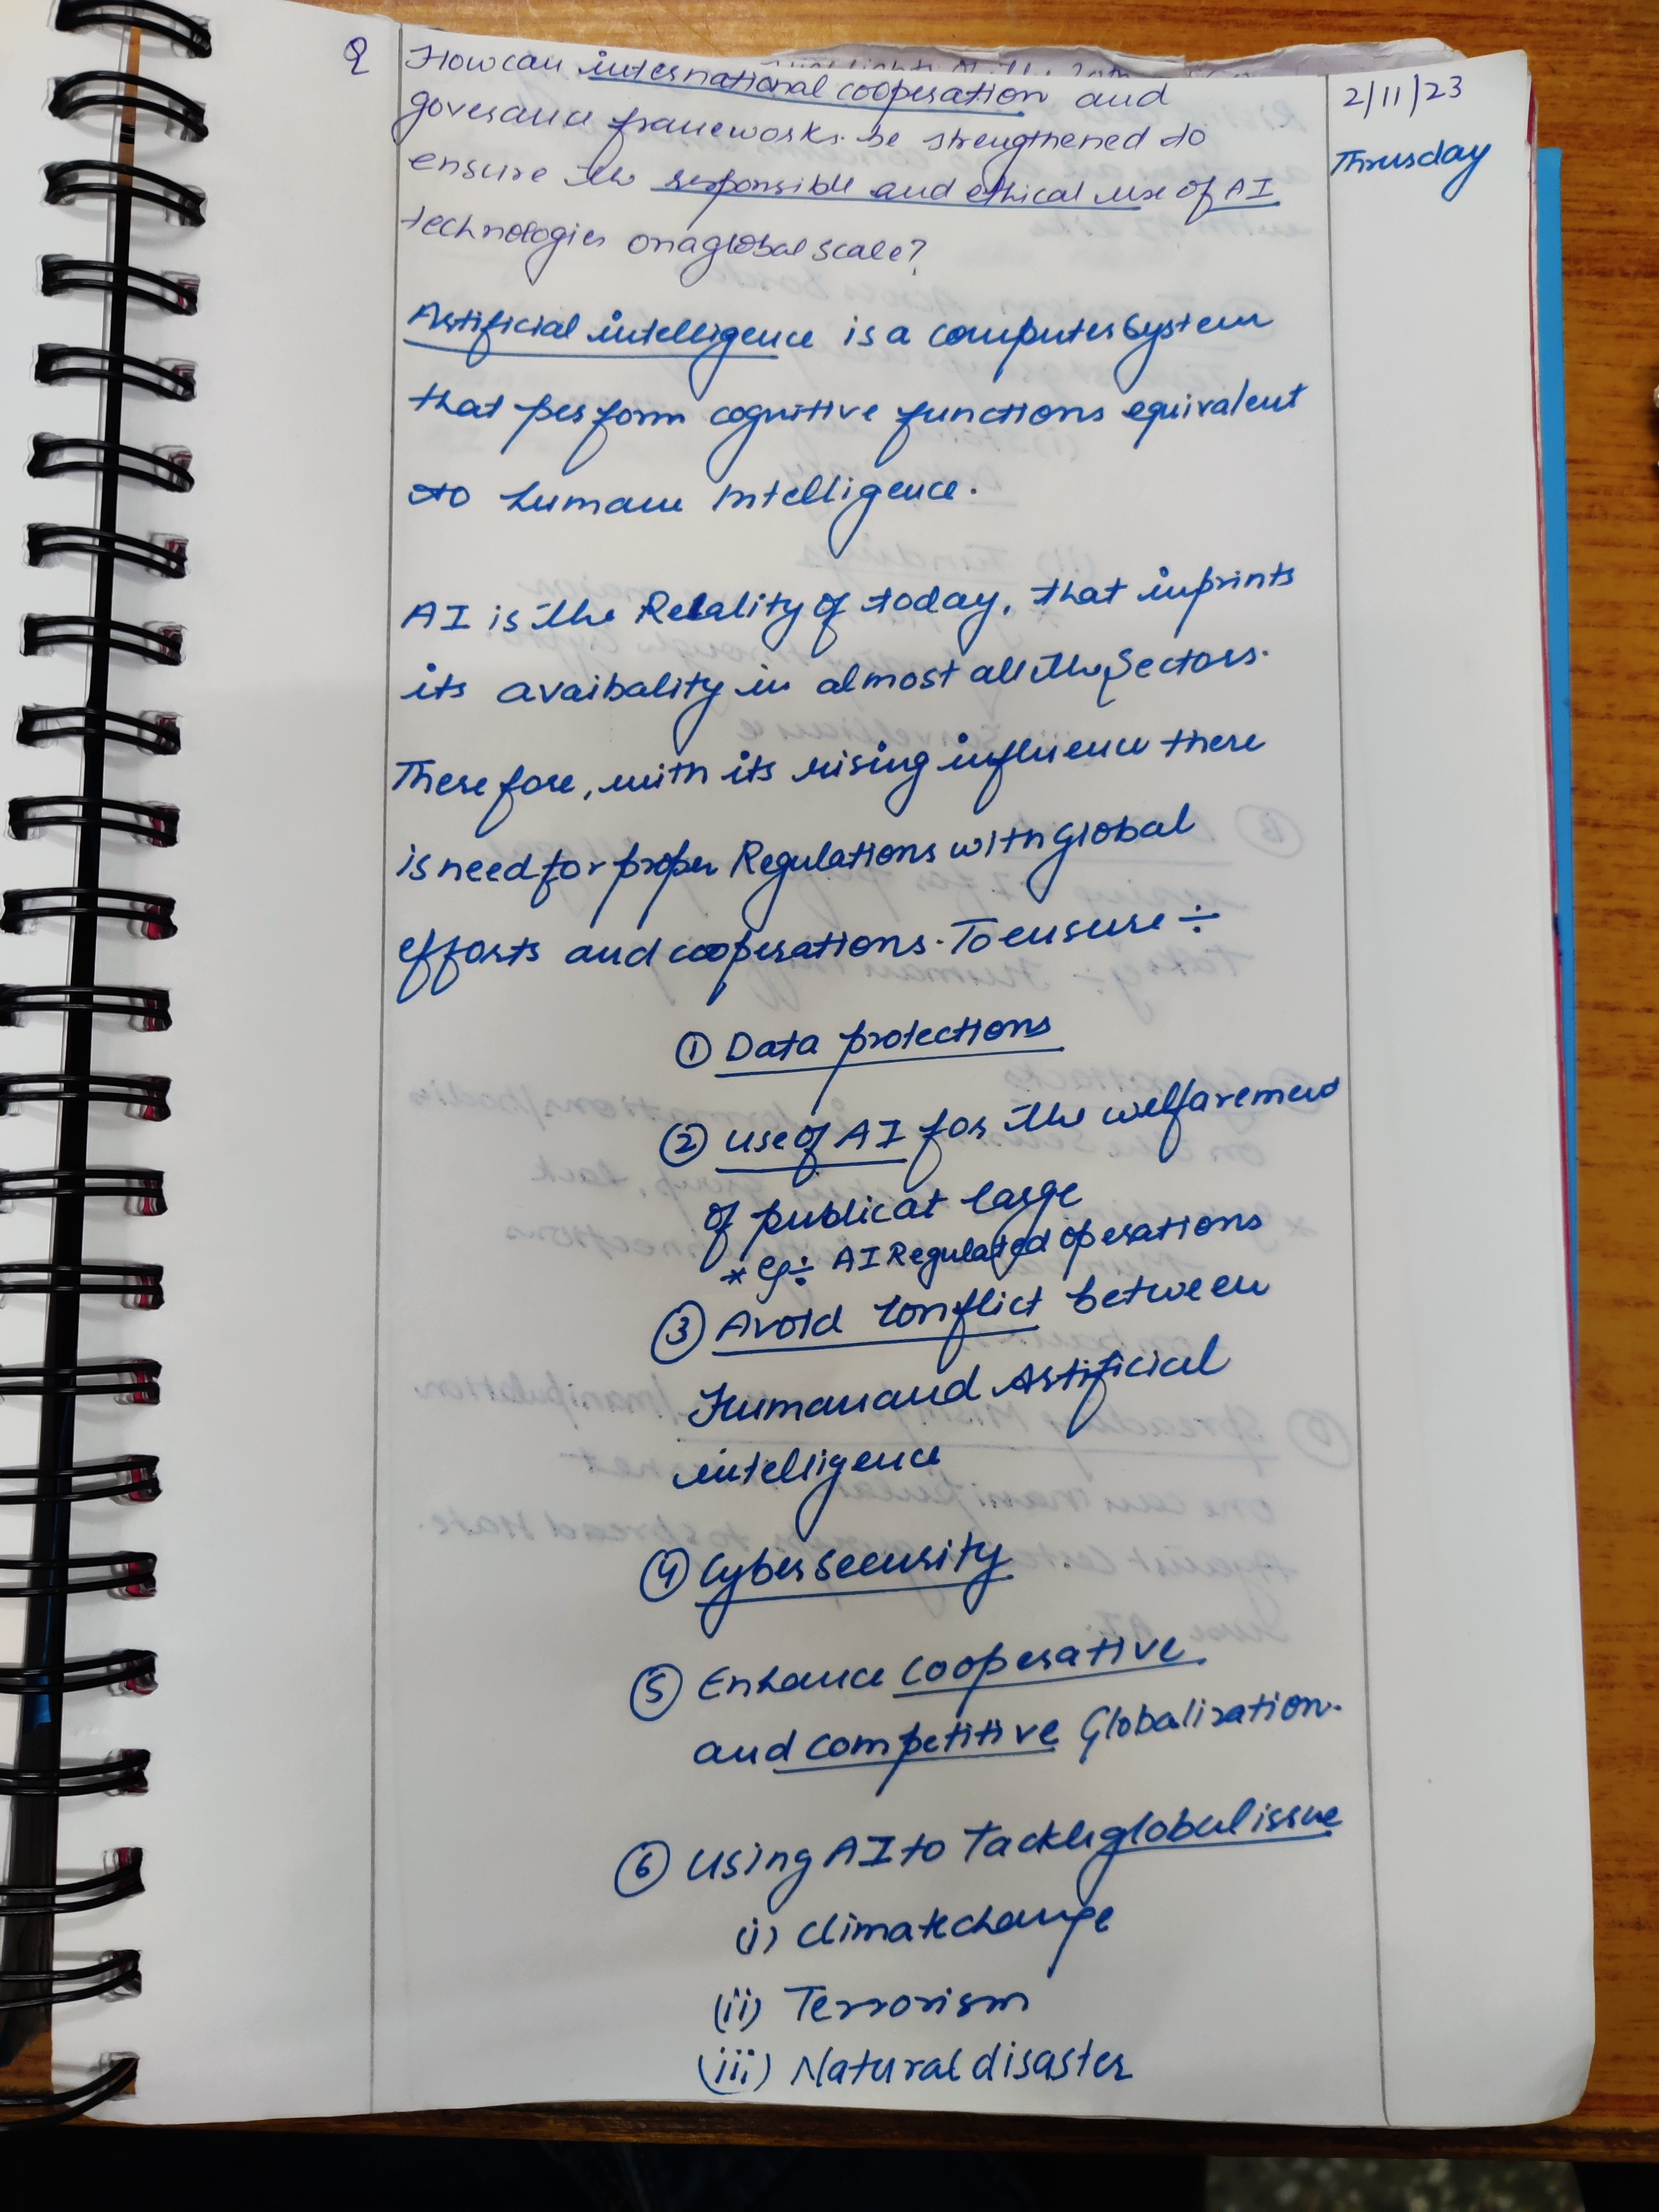 Q How can international cooperation and
goverance frameworks be strengthened to
ensure the responsible and ethical use of AI
technologies on a global scale?
2/11/23
Thrusday
Artificial intelligence is a computer system
that perform cognitive functions equivalent
to humane Intelligence.
AI is the Relality of today, that inprints
its avaibality in almost all the Sectors.
Therefore, with its rising influence there
is need for proper Regulations with Global
efforts and cooperations. To ensure ÷
① Data protections
② use of AI for the welfarement
of public at large
* eg÷ AI Regulated operations
③ Avoid Conflict between
Human and Artificial
intelligence
④ Cyber Security
⑤ Enhance cooperative
and competitive Globalization.
⑥ Using AI to Tackle global issue
(i) Climate change
(ii) Terrorism
(iii) Natural disaster